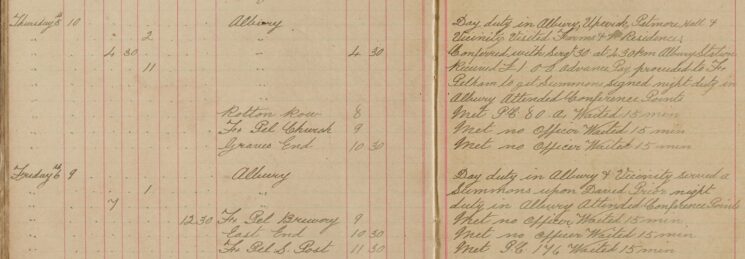 Thursday 5th 10 Albury Day duty in Albury, Upwick, Patmore Hall &
" " 2 " Vicinity Visited Farms & Residences
" " 4 30 " 4 30 Conferred with Serg 30 at 4.30 pm Albury Station
" " 11 " Received £1 0 0 advance Pay proceeded to Fx
" " Pelham to get Summons signed night duty in
" " Albury Attended Conference Points
" " Rotton Row 8 Met P.C. 80 A. Waited 15 min
" " Fx Pel Church 9 Met no Officer Waited 15 min
" " Graves End 10 30 Met no Officer Waited 15 min
Friday 6th 9 Albury Day duty in Albury & Vicinity served a
" " 1 " Summons upon David Prior night
" " 7 " duty in Albury Attended Conference Points
" " 12.30 Fx Pel Brewory 9 Met no Officer Waited 15 min
" " East End 10 30 Met no Officer Waited 15 min
" " Fx Pel S. Post 11 30 Met P.C. 176 Waited 15 min